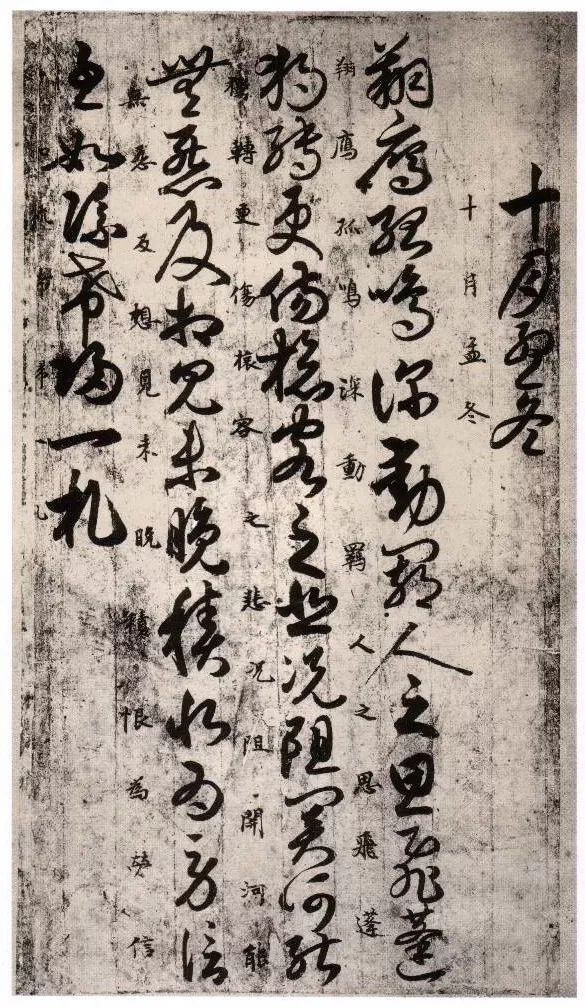 十月孟冬
十月孟冬
翔鷹孤鳴深動羈人之思飛蓬
翔鷹孤鳴深動羈人之思飛蓬
獨轉更傷客之悲況阻關河能
獨轉更傷容之悲況阻開河能
無及想見未晚積恨為勞信
無及想見未晚積恨為勞信
至如希一札